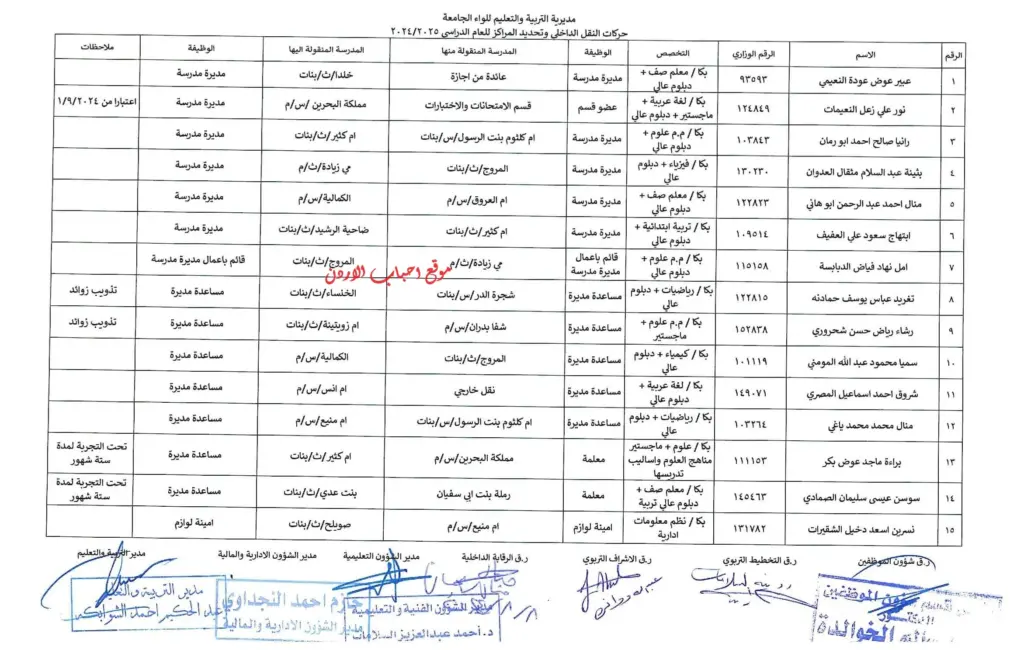 مديرية التربية والتعليم للواء الجامعة
حركات النقل الداخلي وتحديد المراكز للعام الدراسي ٢٠٢٤/٢٠٢٥
الرقم الاسم الرقم الوزاري التخصص الوظيفة المدرسة المنقولة منها المدرسة المنقولة اليها الوظيفة ملاحظات
١ عبير عوض عودة النعيمي ٩٣٥٩٣ بكا / معلم صف + دبلوم عالي مديرة مدرسة عائدة من اجازة خلدا/ث/بنات مديرة مدرسة
٢ نور علي زعل النعيمات ١٢٤٨٤٩ بكا / لغة عربية + ماجستير + دبلوم عالي عضو قسم قسم الامتحانات والاختبارات مملكة البحرين /س/م مديرة مدرسة اعتبارا من ١/٩/٢٠٢٤
٣ رانيا صالح احمد ابو رمان ١٠٣٨٤٣ بكا / م.م علوم + دبلوم عالي مديرة مدرسة ام كلثوم بنت الرسول/س/بنات ام كثير/ث/بنات مديرة مدرسة
٤ بثينة عبد السلام مثقال العدوان ١٣٠٢٣٠ بكا / فيزياء + دبلوم عالي مديرة مدرسة المروج/ث/بنات مي زيادة/ث/م مديرة مدرسة
٥ منال احمد عبد الرحمن ابو هاني ١٢٢٨٢٣ بكا / معلم صف + دبلوم عالي مديرة مدرسة ام العروق/س/م الكمالية/س/م مديرة مدرسة
٦ ابتهاج سعود علي العفيف ١٠٩٥١٤ بكا / تربية ابتدائية + دبلوم عالي مديرة مدرسة ام كثير/ث/بنات ضاحية الرشيد/ث/بنات مديرة مدرسة
٧ امل نهاد فياض الدبابسة ١١٥١٥٨ بكا / م.م علوم + دبلوم عالي قائم باعمال مديرة مدرسة مي زيادة/ث/م المروج/ث/بنات قائم باعمال مديرة مدرسة
موقع احباب الاردن
٨ تغريد عباس يوسف حمادنه ١٢٢٨١٥ بكا / رياضيات + دبلوم عالي مساعدة مديرة شجرة الدر/س/بنات الخنساء/ث/بنات مساعدة مديرة تذويب زوائد
٩ رشاء رياض حسن شحروري ١٥٢٨٣٨ بكا / م.م علوم + ماجستير مساعدة مديرة شفا بدران/س/م ام زويتينة/ث/بنات مساعدة مديرة تذويب زوائد
١٠ سميا محمود عبد الله المومني ١٠١١١٩ بكا / كيمياء + دبلوم عالي مساعدة مديرة المروج/ث/بنات الكمالية/س/م مساعدة مديرة
١١ شروق احمد اسماعيل المصري ١٤٩٠٧١ بكا / لغة عربية + دبلوم عالي مساعدة مديرة نقل خارجي ام انس/س/م مساعدة مديرة
١٢ منال محمد محمد ياغي ١٠٣٢٦٤ بكا / رياضيات + دبلوم عالي مساعدة مديرة ام كلثوم بنت الرسول/س/بنات ام منيع/س/م مساعدة مديرة
١٣ براءة ماجد عوض بكر ١١١١٥٣ بكا / علوم + ماجستير مناهج العلوم واساليب تدريسها معلمة مملكة البحرين/س/م ام كثير/ث/بنات مساعدة مديرة تحت التجربة لمدة ستة شهور
١٤ سوسن عيسى سليمان الصمادي ١٤٥٤٦٣ بكا / معلم صف + دبلوم عالي تربية معلمة رملة بنت ابي سفيان بنت عدي/ث/بنات مساعدة مديرة تحت التجربة لمدة ستة شهور
١٥ نسرين اسعد دخيل الشقيرات ١٣١٧٨٢ بكا / نظم معلومات ادارية امينة لوازم ام منيع/س/م صويلح/ث/بنات امينة لوازم
ر.ق شؤون الموظفين ر.ق التخطيط التربوي ر.ق الاشراف التربوي ر.ق الرقابة الداخلية مدير الشؤون التعليمية مدير الشؤون الادارية والمالية مدير التربية والتعليم
مدير التربية والتعليم
حازم احمد النجداوي
مدير الشؤون الادارية والمالية
مدير الشؤون الفنية والتعليمية
د. أحمد عبدالعزيز السلامات